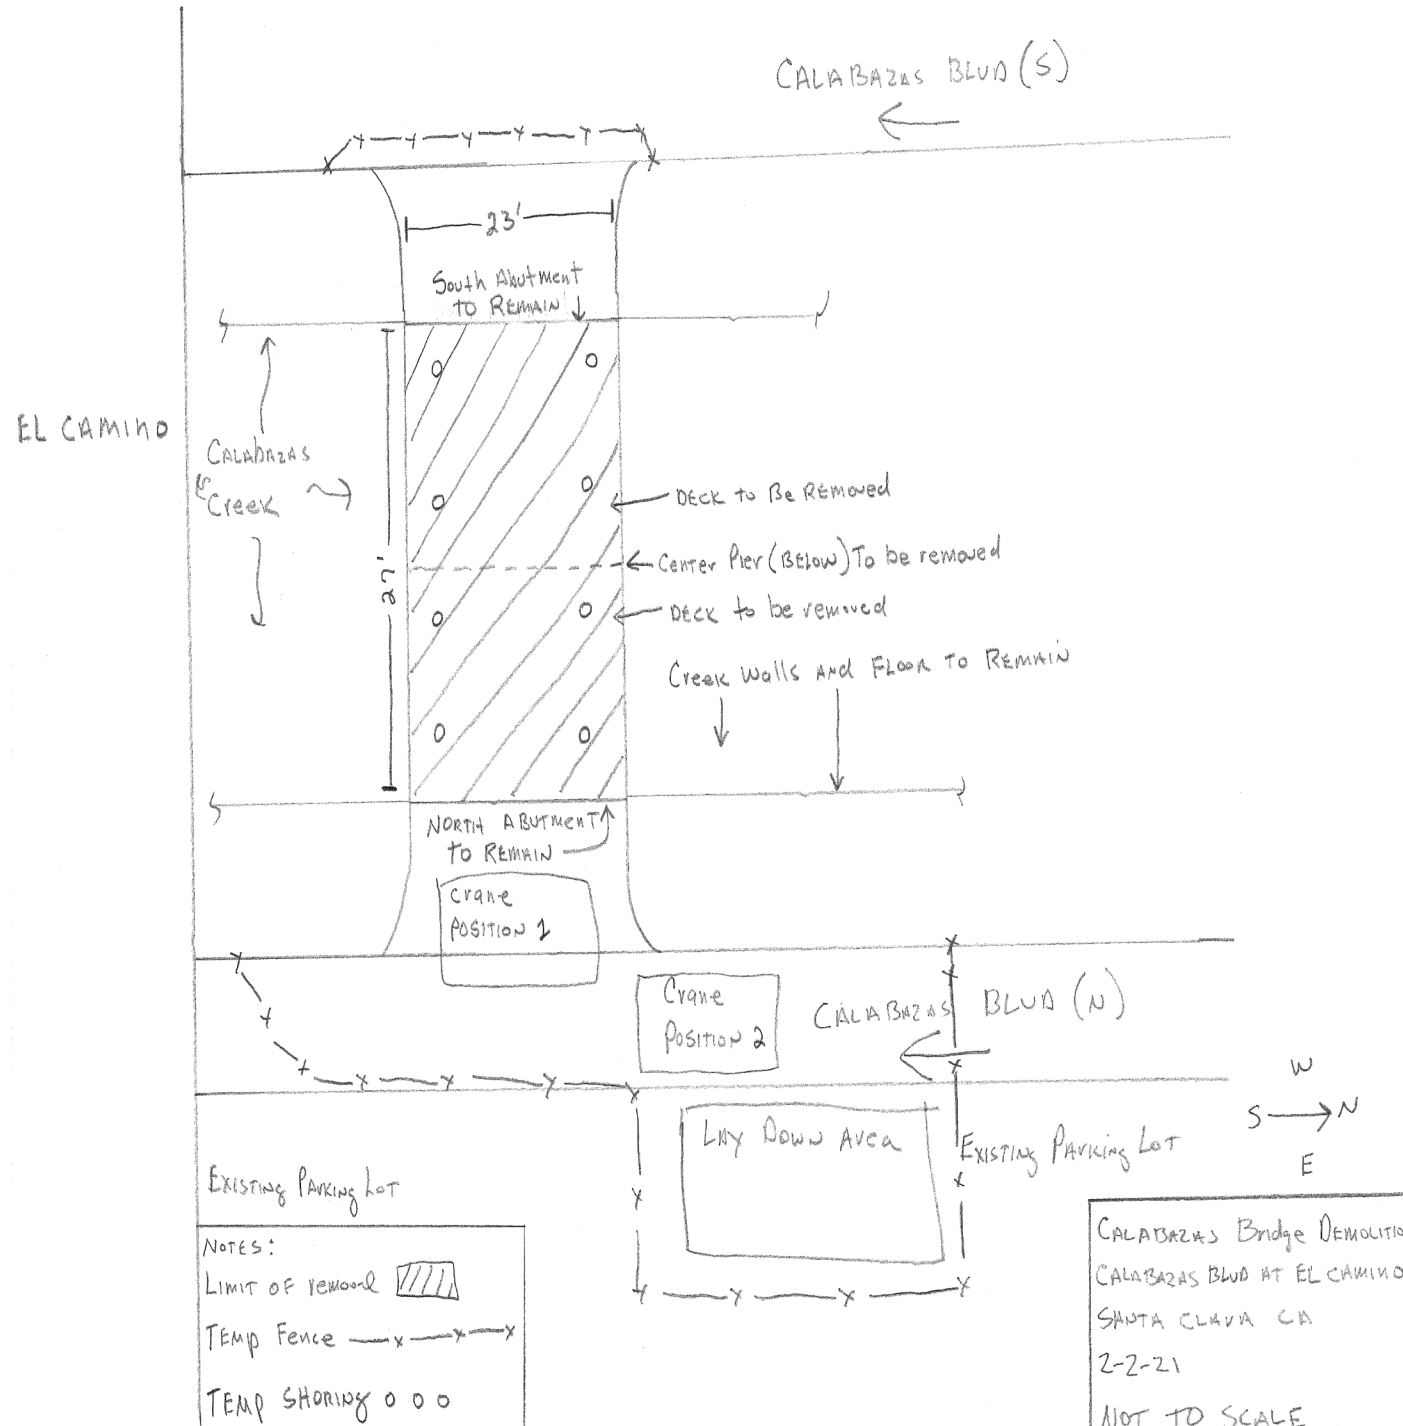 CALABAZAS BLVD (S)
23'
South Abutment
TO REMAIN
EL CAMINO
CALABAZAS
Creek
27'
DECK to Be REMOVED
Center Pier (BELOW) To be removed
DECK to be removed
Creek Walls AND FLOOR TO REMAIN
NORTH ABUTMENT
TO REMAIN
Crane
POSITION 1
Crane
POSITION 2
CALABAZAS BLVD (N)
W
S N
E
LAY DOWN AREA
EXISTING PARKING LOT
EXISTING PARKING LOT
NOTES:
LIMIT OF removal
TEMP Fence
TEMP SHORING
CALABAZAS Bridge DEMOLITIO
CALABAZAS BLVD AT EL CAMINO
SANTA CLARA CA
2-2-21
NOT TO SCALE